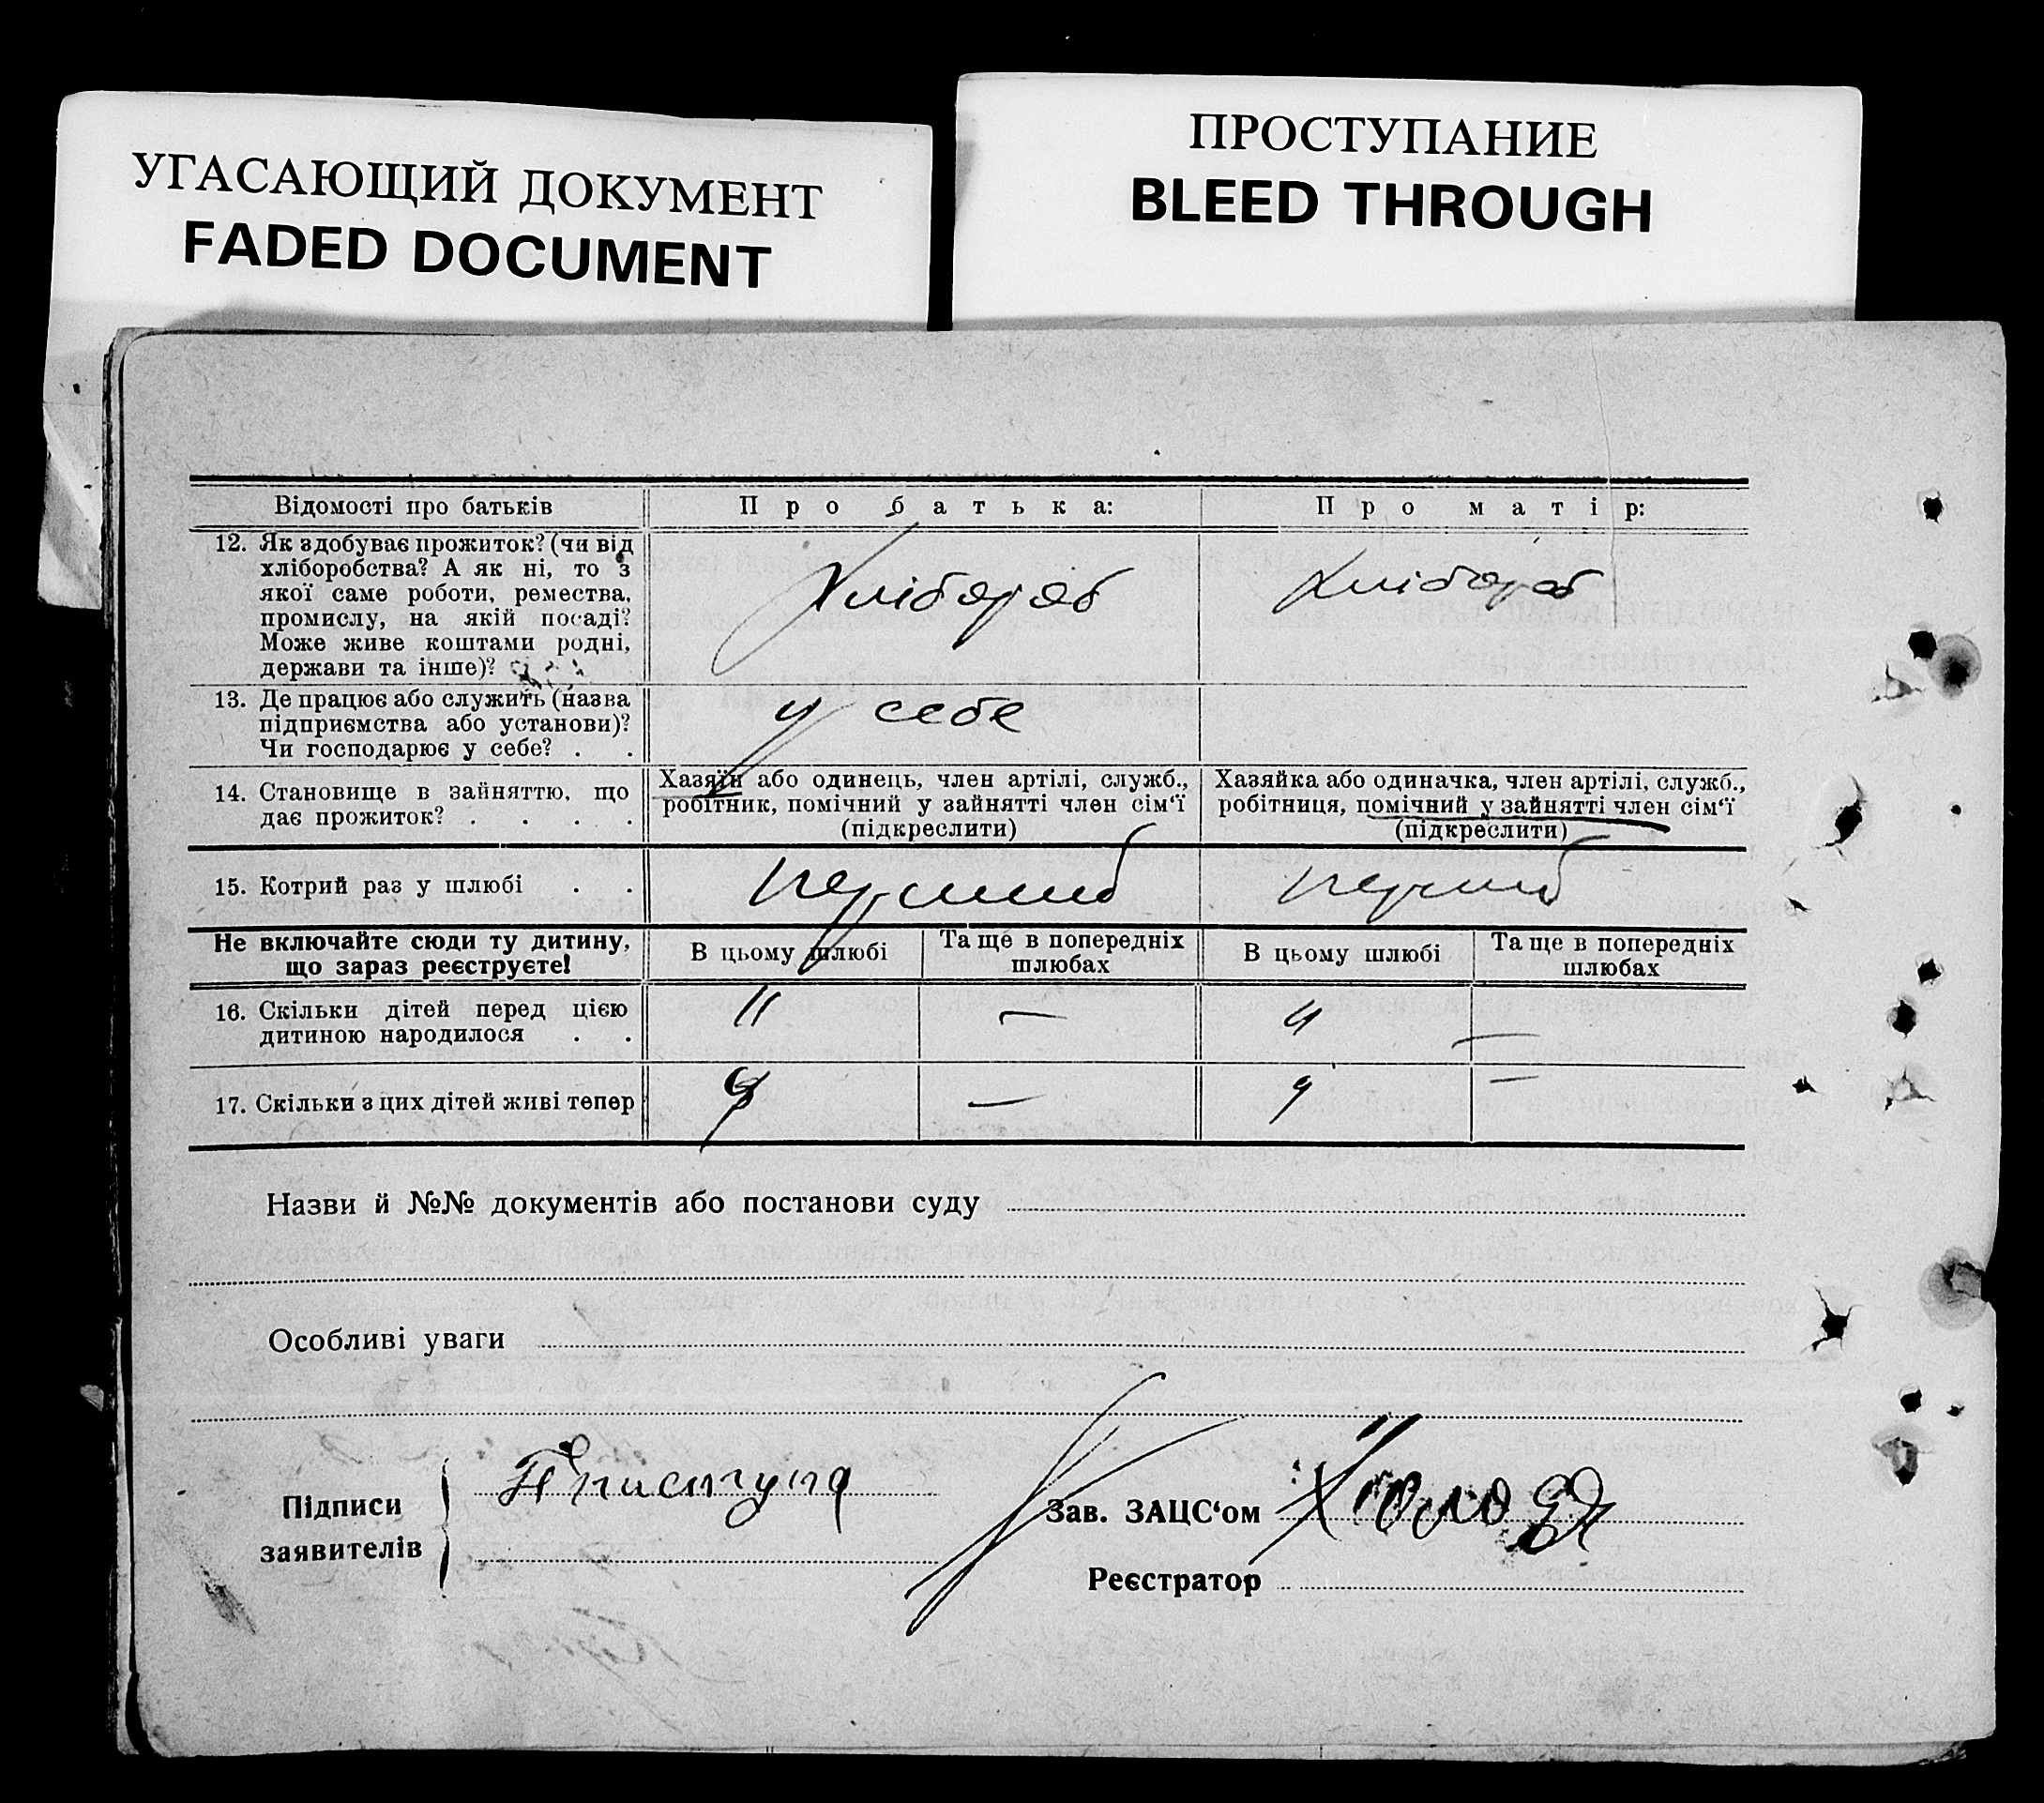 УГАСАЮЩИЙ ДОКУМЕНТ
FADED DOCUMENT
ПРОСТУПАНИЕ
BLEED THROUGH
Відомості про батьків
Про батька:
Про матір:
12. Як здобуває прожиток? (чи від
хліборобства? А як ні, то з
якої саме роботи, ремества,
промислу, на якій посаді?
Може живе коштами родні,
держави та інше)?
Хлібороб
Хлібороб
13. Де працює або служить (назва
підприємства або установи)?
Чи господарює у себе? . .
у себе
14. Становище в зайняттю, що
дає прожиток? . . . .
Хазяїн або одинець, член артілі, служб.,
робітник, помічний у зайнятті член сім‘ї
(підкреслити)
Хазяйка або одиначка, член артілі, служб.,
робітниця, помічний у зайнятті член сім‘ї
(підкреслити)
15. Котрий раз у шлюбі . .
перший
перший
Не включайте сюди ту дитину,
що зараз реєструєте!
В цьому шлюбі
Та ще в попередніх
шлюбах
В цьому шлюбі
Та ще в попередніх
шлюбах
16. Скільки дітей перед цією
дитиною народилося . .
—
—
17. Скільки з цих дітей живі тепер
—
—
Назви й №№ документів або постанови суду
Особливі уваги
Підписи
заявителів
Зав. ЗАЦС‘ом
Реєстратор